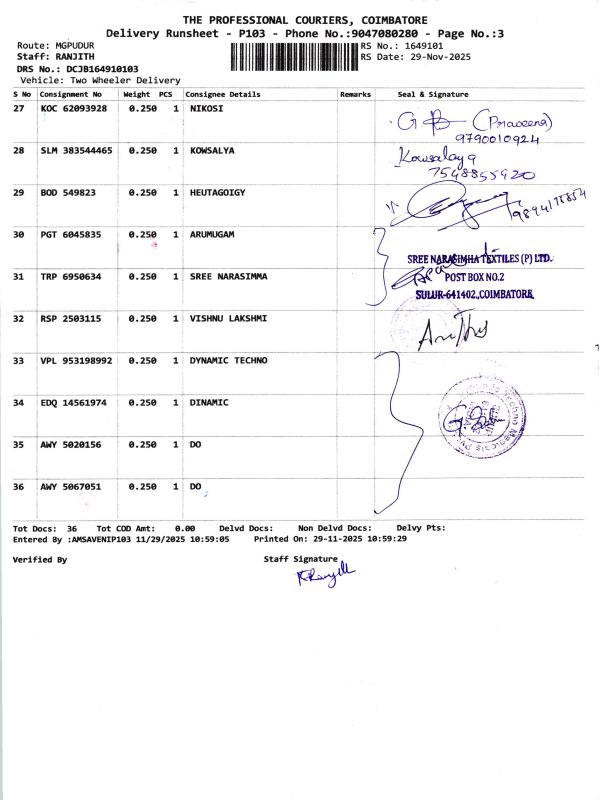 THE PROFESSIONAL COURIERS, COIMBATORE
Delivery Runsheet - P103 - Phone No.:9047080280 - Page No.:3
Route: MGPUDUR RS No.: 1649101
Staff: RANJITH RS Date: 29-Nov-2025
DRS No.: DCJB164910103
Vehicle: Two Wheeler Delivery
S No Consignment No Weight PCS Consignee Details Remarks Seal & Signature
27 KOC 62093928 0.250 1 NIKOSI
(Praveena)
9790010924
28 SLM 383544465 0.250 1 KOWSALYA
Kowsalaya
7548855920
29 BOD 549823 0.250 1 HEUTAGOIGY
30 PGT 6045835 0.250 1 ARUMUGAM
SREE NARASIMHA TEXTILES (P) LTD.
31 TRP 6950634 0.250 1 SREE NARASIMMA POST BOX NO.2
SULUR-641402, COIMBATORE
32 RSP 2503115 0.250 1 VISHNU LAKSHMI
33 VPL 953198992 0.250 1 DYNAMIC TECHNO
34 EDQ 14561974 0.250 1 DINAMIC
35 AWY 5020156 0.250 1 DO
36 AWY 5067051 0.250 1 DO
Tot Docs: 36 Tot COD Amt: 0.00 Delvd Docs: Non Delvd Docs: Delvy Pts:
Entered By :AMSAVENIP103 11/29/2025 10:59:05 Printed On: 29-11-2025 10:59:29
Verified By Staff Signature